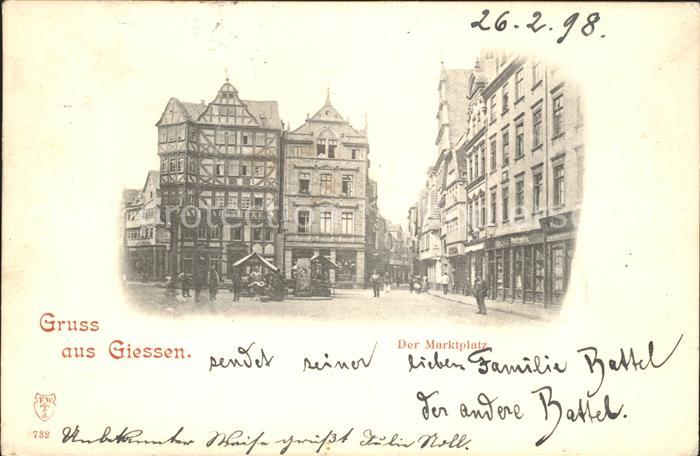 26.2.98.
APOTHEKE
Gruss
aus Giessen.
Der Marktplatz.
sendet seiner lieben Familie Battel
der andere Battel.
F.W.
732
Unbekannter Weise grüßt Julie Noll.